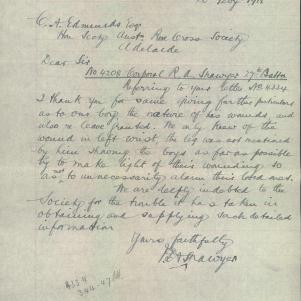 C. A. Edmunds Esq
Hon Secty Aust. Red Cross Society
Adelaide
Dear Sir
No 4208 Corporal R A Shawyer 27th Battn
Referring to your letter No 4334
I thank you for same giving further particulars
as to our boy the nature of his wounds, and
also re leave granted. We only knew of the
wound in left wrist, the leg was not mentioned
by him showing the boys as far as possible
try to make light of their wounding so
as not to unnecessarily alarm their loved ones.
We are deeply indebted to the
Society for the trouble it has taken in
obtaining and supplying such detailed
information
Yours faithfully
Shawyer